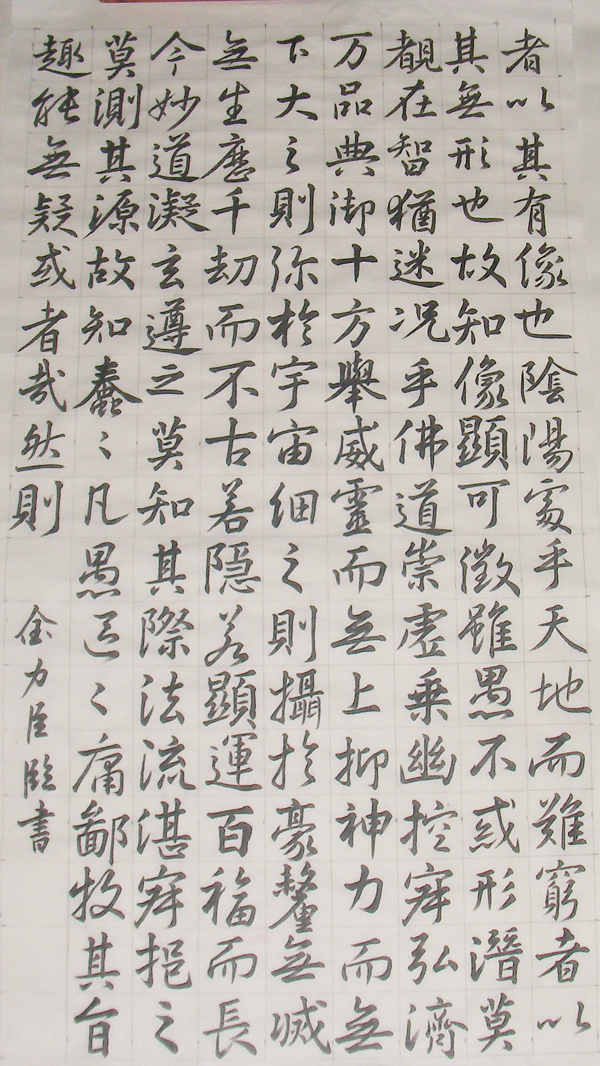 者以其有像也陰陽處乎天地而難窮者以
其無形也故知像顯可徵雖愚不惑形潛莫
覩在智猶迷况乎佛道崇虛乘幽控寂弘濟
万品典御十方舉威靈而無上抑神力而無
下大之則弥於宇宙細之則攝於豪釐無滅
無生歷千劫而不古若隱若顯運百福而長
今妙道凝玄遵之莫知其際法流湛寂挹之
莫測其源故知蠢〻凡愚區〻庸鄙投其旨
趣能無疑或者哉然則
金力臣臨書